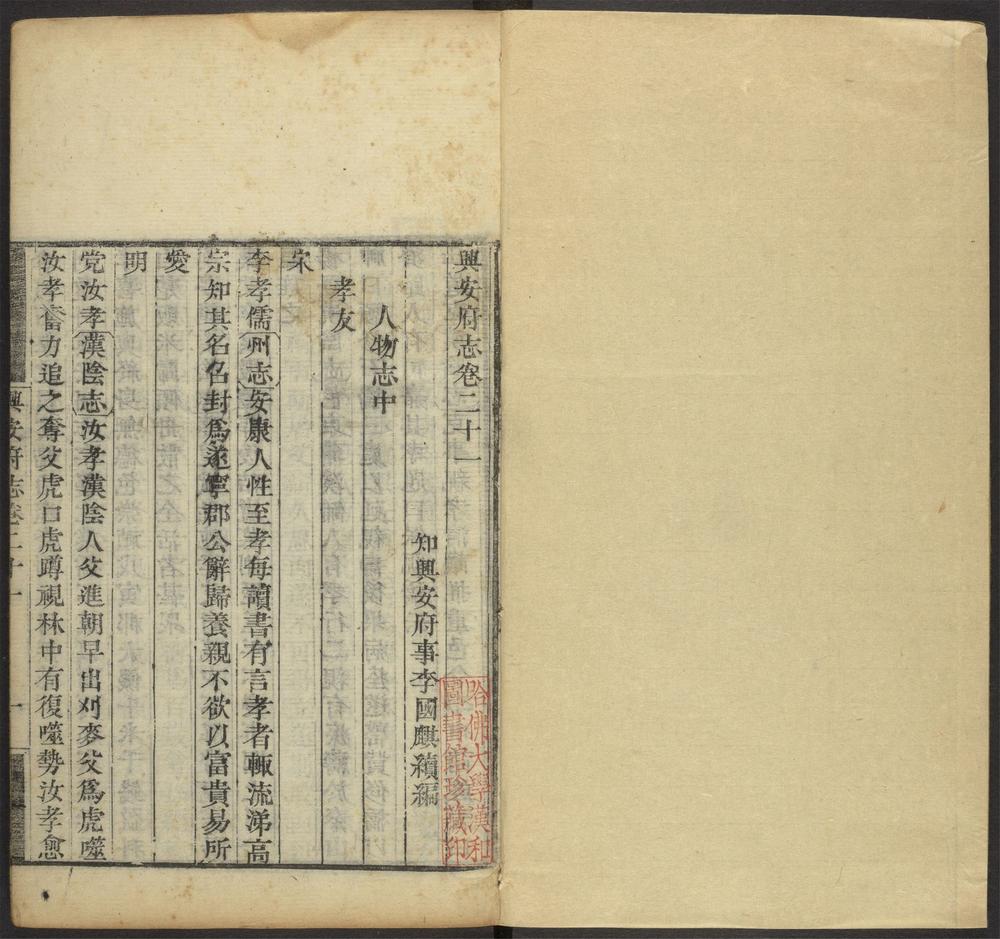 興安府志卷二十一
知興安府事李國麒續編
人物志中
孝友
宋
李孝儒州志安康人性至孝每讀書有言孝者輒流涕高
宗知其名召封爲遂寧郡公辭歸養親不欲以富貴易所
愛
明
党汝孝漢陰志汝孝漢陰人父進朝早出刈麥父爲虎噬
汝孝奮力追之奪父虎口虎蹲視林中有復噬勢汝孝愈
興安府志卷二十一 一
哈佛大學漢和
圖書館珍藏印